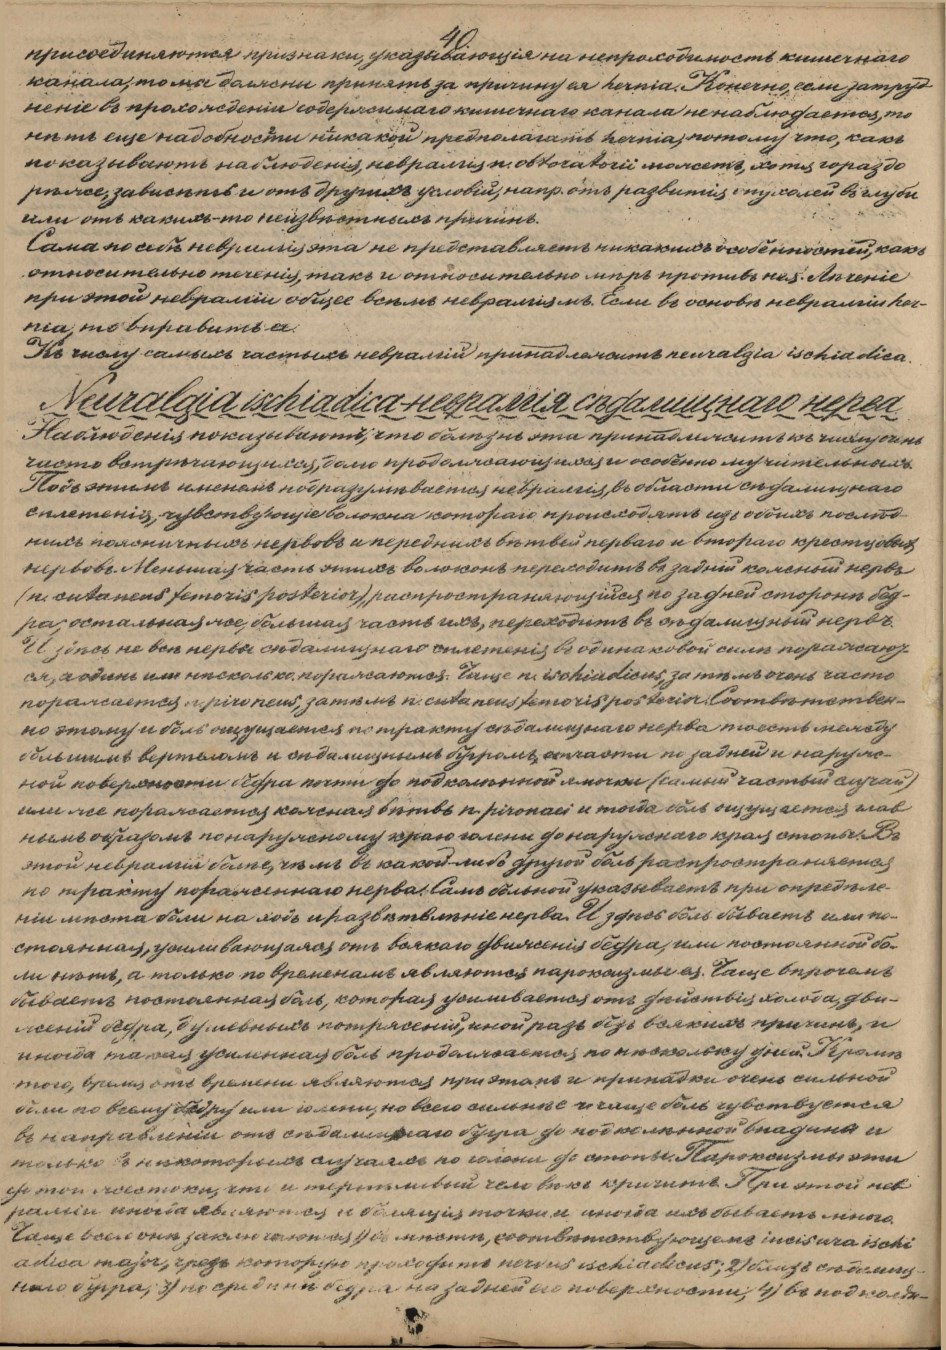 40
присоединяются признаки, указывающія на непроходимость кишечнаго
канала, то мы должны принять за причину ея hernia. Конечно, если затруд
неніе въ прохожденіи содержимаго кишечнаго канала не наблюдается, то
нѣтъ еще надобности никакой предполагать hernia, потому что, какъ
показываютъ наблюденія, невралгія n. obturatorii можетъ, хотя гораздо
рѣже, зависѣть и отъ другихъ условій, напр. отъ развитія опухолей въ глуби
или отъ какихъ-то неизвѣстныхъ причинъ.
Сама по себѣ невралгія эта не представляетъ никакихъ особенностей, какъ
относительно теченія, такъ и относительно мѣръ противъ нея. Лѣченіе
при этой невралгіи общее всѣмъ невралгіямъ. Если въ основѣ невралгіи her-
nia, то вправить ее.
Къ числу самыхъ частыхъ невралгій принадлежитъ neuralgia ischiadica.
Neuralgia ischiadica - невралгія сѣдалищнаго нерва
Наблюденія показываютъ, что болѣзнь эта принадлежитъ къ числу очень
часто встрѣчающихся, долго продолжающихся и особенно мучительныхъ.
Подъ этимъ именемъ подразумѣвается невралгія въ области сѣдалищнаго
сплетенія, чувствующіе волокна котораго происходятъ изъ обоихъ послѣд-
нихъ поясничныхъ нервовъ и переднихъ вѣтвей перваго и втораго крестцовыхъ
нервовъ. Меньшая часть этихъ волоконъ переходитъ въ задній кожный нервъ
(n. cutaneus femoris posterior), распространяющійся по задней сторонѣ бед-
ра; остальная же, большая часть ихъ, переходитъ въ сѣдалищный нервъ.
И здѣсь не всѣ нервы сѣдалищнаго сплетенія въ одинаковой силѣ поражают
ся, а одинъ или нѣсколько поражаются. Чаще n. ischiadicus, за тѣмъ очень часто
поражается n. pironeus, затѣмъ n. cutaneus femoris posterior. Соотвѣтствен-
но этому и боль ощущается по тракту сѣдалищнаго нерва то есть между
большимъ вертеломъ и сѣдалищнымъ бугромъ, отчасти по задней и наруж-
ной поверхности бедра почти до подколѣнной ямочки (самый частый случай)
или же поражается кожная вѣтвь n. pironaei и тогда боль ощущается глав
нымъ образомъ по наружному краю голени до наружнаго края стопы. Въ
этой невралгіи болѣе, чѣмъ въ какой-либо другой боль распространяется
по тракту пораженнаго нерва. Самъ больной указываетъ при опредѣле-
ніи мѣста боли на ходъ и развѣтвлѣніе нерва. И здѣсь боль бываетъ или по-
стоянная, усиливающаяся отъ всякаго движенія бедра, или постоянной бо-
ли нѣтъ, а только по временамъ являются пароксизмы ея. Чаще впрочемъ
бываетъ постоянная боль, которая усиливается отъ дѣйствія холода, дви-
женій бедра, душевныхъ потрясеній, иной разъ безъ всякихъ причинъ, и
иногда такая усиленная боль продолжается по нѣскольку дней. Кромѣ
того, время отъ времени являются при этомъ и припадки очень сильной
боли по всему бедру или голени, но всего сильнѣе и чаще боль чувствуется
въ направленіи отъ сѣдалищнаго бугра до подколѣнной впадины и
только въ нѣкоторыхъ случаяхъ по голени до стопы. Пароксизмы эти
до того жестоки, что и терпѣливый человѣкъ кричитъ. При этой нев
ралгіи иногда являются и болящія точки и иногда ихъ бываетъ много.
Чаще всего онѣ заключаются 1) въ мѣстѣ, соотвѣтствующемъ incisura ischi
adica major, чрезъ которую проходитъ nervus ischiadicus; 2) близъ сѣдалищ-
наго бугра; 3) по срединѣ бедра на задней его поверхности; 4) въ подколѣн-